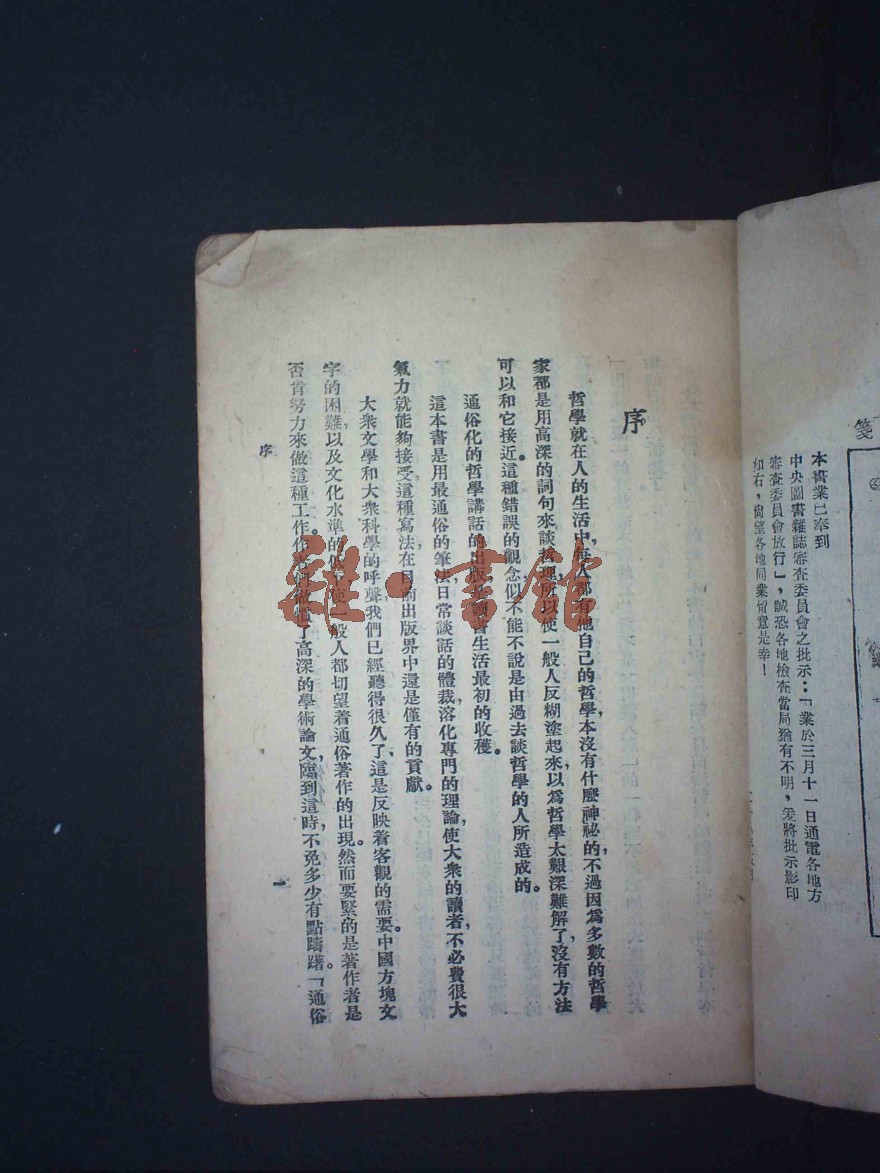 箋
本書業已奉到
中央圖書雜誌審查委員會之批示：「業於三月十一日通電各地方
審查委員會放行」，誠恐各地檢查當局猶有不明，爰將批示影印
如右，尙望各地同業留意是幸！
序
哲學就在人的生活中，每人都有他自己的哲學，本沒有什麼神祕的，不過因爲多數的哲學
家都是用高深的詞句來談哲理，所以使一般人反糊塗起來，以爲哲學太艱深難解了，沒有方法
可以和它接近。這種錯誤的觀念似不能不說是由過去談哲學的人所造成的。
通俗化的哲學講話的出版是讀書生活最初的收穫。
這本書是用最通俗的筆法，日常談話的體裁，溶化專門的理論，使大衆的讀者，不必費很大
氣力就能夠接受。這種寫法，在目前出版界中還是僅有的貢獻。
大衆文學和大衆科學的呼聲，我們已經聽得很久了，這是反映着客觀的需要。中國方塊文
字的困難，以及文化水準的低下，使一般人都切望着通俗著作的出現。然而要緊的是著作者是
否肯努力來做這種工作。作者們做慣了高深的學術論文，臨到這時，不免多少有點躊躇。「通俗
序
一
雜·書館